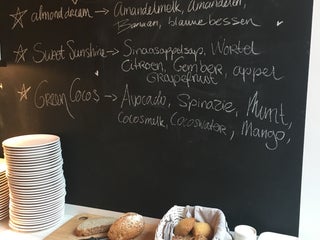 almond dream → Amandelmelk, Amandelen,
Banaan, blauwe bessen
Sweet Sunshine → Sinaasappelsap, Wortel
Citroen, Gember, appel
Grapefruit
Green Cocos → Avocado, Spinazie, Munt,
Cocosmelk, Cocoswater, Mango,